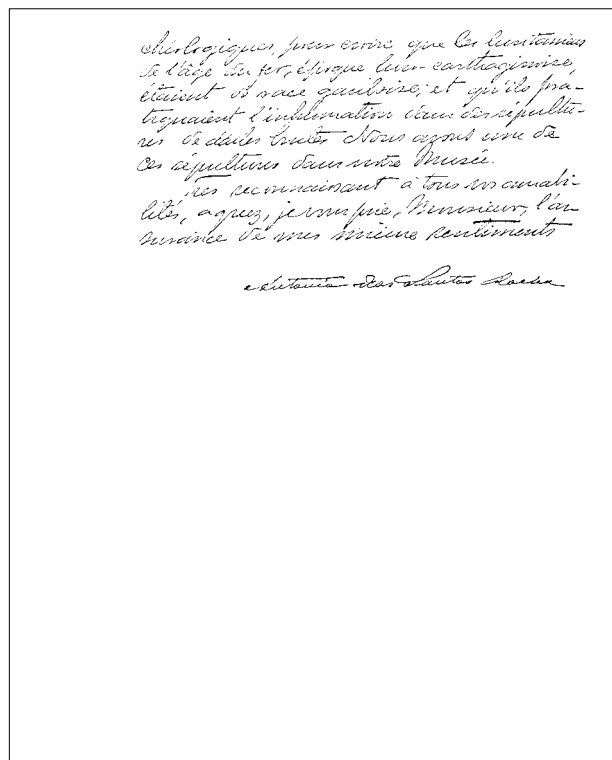 chéologiques, pour croire que les lusitaniens
de l'âge du fer, époque luso-carthaginoise,
étaient de race gauloise, et qu'ils pra-
tiquaient l'inhumation dans des sépultu-
res de dalles brutes. Nous avons une de
ces sépultures dans notre Musée.
res reconnaissant à tous vos amabi-
lités, agréez, je vous prie, Monsieur, l'as
surance de mes sentiments
Antonio dos Santos Rocha